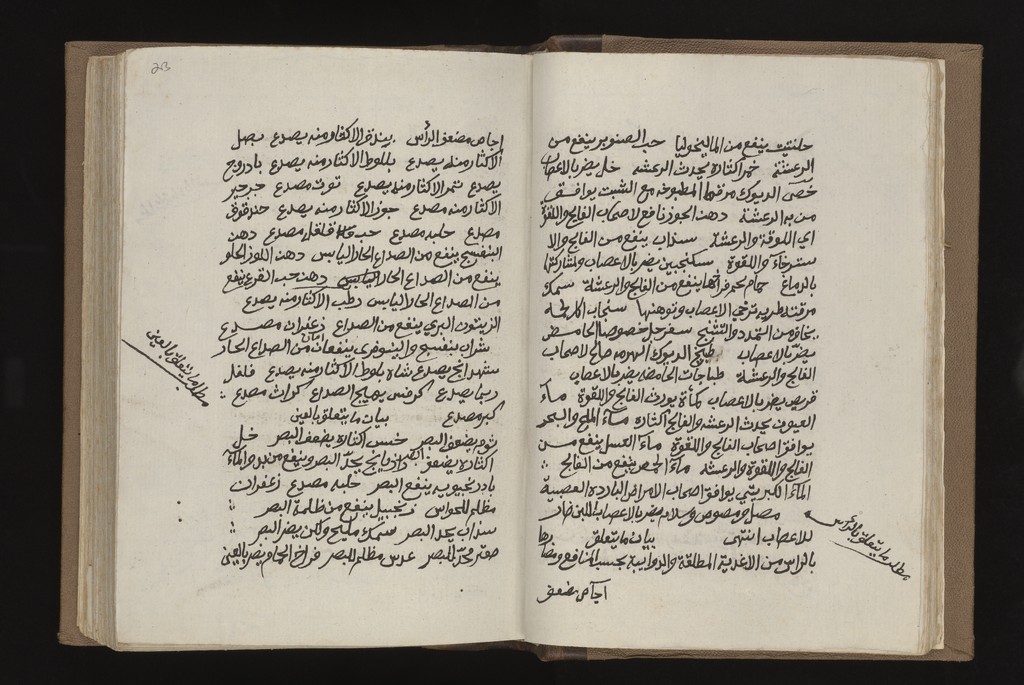 حلتيت ينفع من الماليخوليا حب الصنوبر ينفع من
الرعشة خمر اكثاره يحدث الرعشه خل يضر بالاعصاب
خصى الديوك مرقها المطبوخه مع الشبت يوافق
من به الرعشة دهن الجوز نافع لاصحاب الفالج واللقوة
اي اللوقة والرعشة سذاب ينفع من الفالج والا
سترخاء واللقوة سكنجبين يضر بالاعصاب ومشاركتها
بالدماغ حمام لحم فراخها ينفع من الفالج والرعشة سمك
مرقته طريه ترخي الاعصاب وتوهنها سنجاب
يخاف من التمدد والتشنج سفرجل خصوصا الحامض
يضر بالاعصاب طبيخ الديوك صالح لاصحاب
الفالج والرعشة طباجات الحامضه يضر بالاعصاب
قريص يضر بالاعصاب كمأة يورث الفالج واللقوة ماء
العيون يحدث الرعشه والفالج اكثاره ماء الملح والبحر
يوافق اصحاب الفالج واللقوة ماء العسل ينفع من
الفالج واللقوة والرعشه ماء الحمص ينفع من الفالج
الماء الكبريتي يوافق اصحاب الامراض البارده العصبية
مصل ومصوص يضر بالاعصاب اللبن ضار
للاعصاب انتهى بيان ما يتعلق
بالراس من الاغدية المطلقة والدوايية بحسب المنافع ومضارها
اجاص مضعف
مطلب ما يتعلق بالراس
23
اجاص مضعف الرأس بندق الاكثار منه يصدع بصل
الاكثار منه يصدع بلوط الاكثار منه يصدع بادروج
يصدع تمر الاكثار منه يصدع توث مصدع جرجير
الاكثار منه مصدع جوز الاكثار منه يصدع حندقوق
مصدع حلبه مصدع حب فلفل مصدع دهن
البنفسج ينفع من الصداع الحار اليابس دهن اللوز الحلو
ينفع من الصداع الحار اليابس دهن حب القرع ينفع
من الصداع الحار اليابس رطب الاكثار منه يصدع
الزيتون البري ينفع من الصداع زعفران مصدع
شراب بنفسج والنيلوفري ينفعان من الصداع الحار
شهدانج يصدع شاه بلوط الاكثار منه يصدع فلفل
ربما يصدع كرفس يهيج الصداع كراث مصدع
كبر مصدع بيان ما يتعلق بالعين
ثوم يضعف البصر خس اكثاره يضعف البصر خل
اكثاره يضعف البصر رازيانج يحد البصر وينفع من نزول الماء
بادرنجبويه ينفع البصر حلبه مصدع زعفران
مظلم للحواس زنجبيل ينفع من ظلمة البصر
سذاب يحد البصر سمك مليح ولكن يضر البصر
صعتر محد للبصر عدس مظلم للبصر فراخ الحمام يضر بالعين
مطلب ما يتعلق بالعين